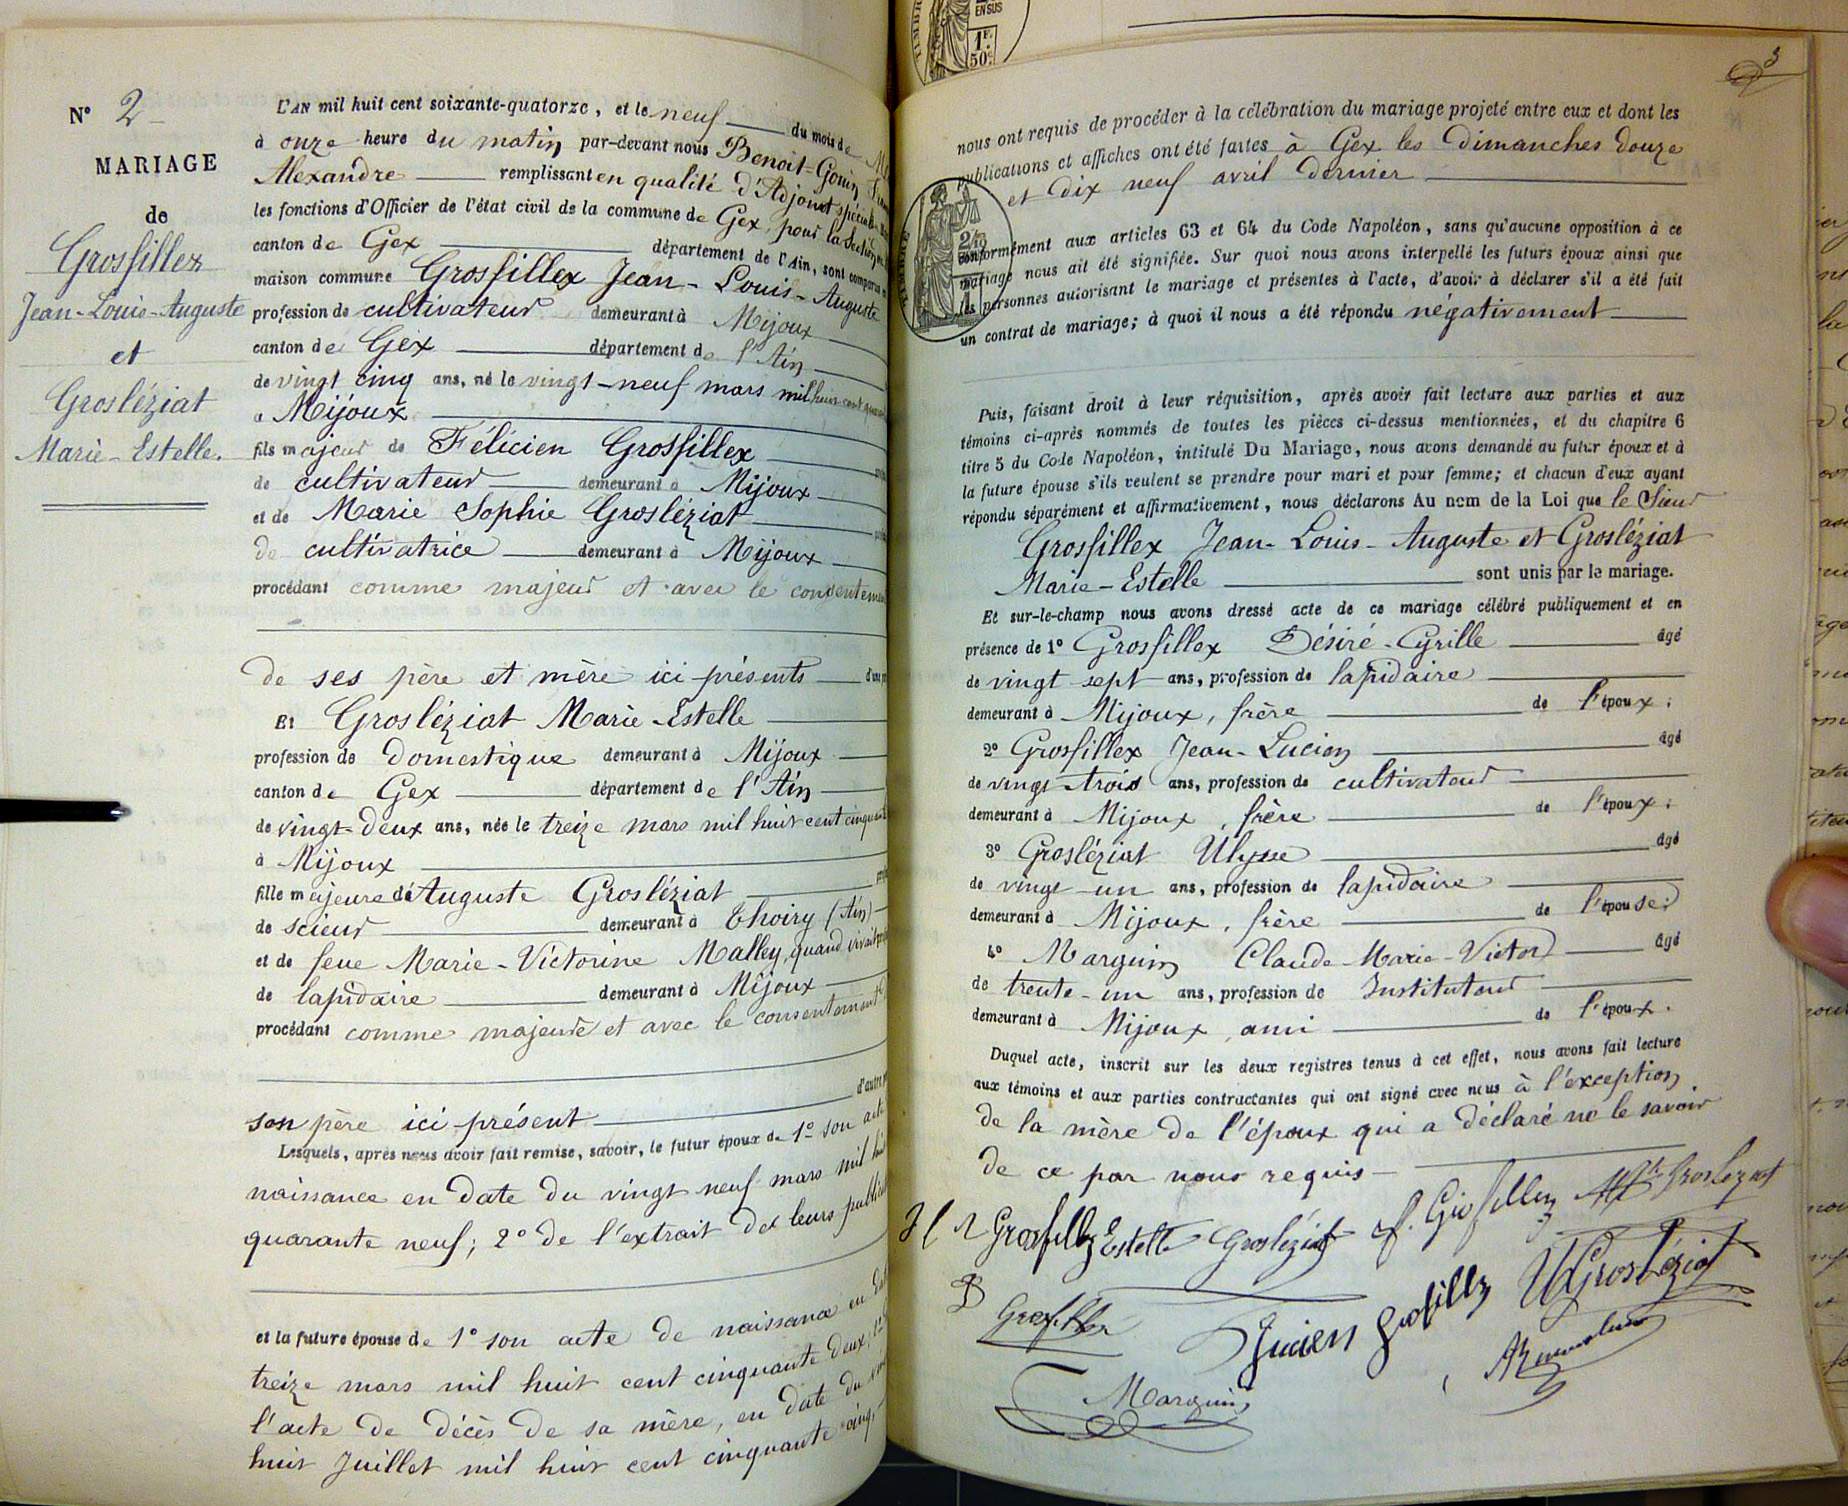 N° 2
MARIAGE
de
Grosfillex
Jean-Louis-Auguste
et
Grosléziat
Marie-Estelle.
L'AN mil huit cent soixante-quatorze, et le neuf du mois de
à onze heure du matin par-devant nous Benoit-Gonin
Alexandre remplissant en qualité d'Adjoint spécial
les fonctions d'Officier de l'état civil de la commune de Gex, pour la Section
canton de Gex département de l'Ain, sont comparus
maison commune Grosfillex Jean-Louis-Auguste
profession de cultivateur demeurant à Mijoux
canton de Gex département de l'Ain
de vingt cinq ans, né le vingt-neuf mars mil huit cent
à Mijoux
fils majeur de Félicien Grosfillex
de cultivateur demeurant à Mijoux
et de Marie Sophie Grosléziat
de cultivatrice demeurant à Mijoux
procédant comme majeur et avec le consentement
de ses père et mère ici présents
Et Grosléziat Marie-Estelle
profession de Domestique demeurant à Mijoux
canton de Gex département de l'Ain
de vingt-deux ans, née le treize mars mil huit cent cinquante
à Mijoux
fille majeure de Auguste Grosléziat
de scieur demeurant à Thoiry (Ain)
et de feue Marie-Victorine Malley, quand vivait
de lapidaire demeurant à Mijoux
procédant comme majeure et avec le consentement
d'autre
son père ici présent
Lesquels, après nous avoir fait remise, savoir, le futur époux de 1° son acte
naissance en date du vingt neuf mars mil
quarante neuf; 2° de l'extrait des leurs
et la future épouse de 1° son acte de naissance en
treize mars mil huit cent cinquante deux,
l'acte de décès de sa mère, en date du
huit Juillet mil huit cent cinquante cinq,
EN SUS
1F.
50c.
3
nous ont requis de procéder à la célébration du mariage projeté entre eux et dont les
publications et affiches ont été faites à Gex les Dimanches douze
et dix neuf avril dernier
TIMBRE
2/10
conformément aux articles 63 et 64 du Code Napoléon, sans qu'aucune opposition à ce
mariage nous ait été signifiée. Sur quoi nous avons interpellé les futurs époux ainsi que
les personnes autorisant le mariage et présentes à l'acte, d'avoir à déclarer s'il a été fait
un contrat de mariage; à quoi il nous a été répondu négativement
Puis, faisant droit à leur réquisition, après avoir fait lecture aux parties et aux
témoins ci-après nommés de toutes les pièces ci-dessus mentionnées, et du chapitre 6
titre 5 du Code Napoléon, intitulé Du Mariage, nous avons demandé au futur époux et à
la future épouse s'ils veulent se prendre pour mari et pour femme; et chacun d'eux ayant
répondu séparément et affirmativement, nous déclarons Au nom de la Loi que le Sieur
Grosfillex Jean-Louis-Auguste et Grosléziat
Marie-Estelle sont unis par le mariage.
Et sur-le-champ nous avons dressé acte de ce mariage célébré publiquement et en
présence de 1° Grosfillex Désiré-Cyrille âgé
de vingt sept ans, profession de lapidaire
demeurant à Mijoux, frère de l'époux;
2° Grosfillex Jean-Lucien âgé
de vingt-trois ans, profession de cultivateur
demeurant à Mijoux, frère de l'époux;
3° Grosléziat Ulysse âgé
de vingt-un ans, profession de lapidaire
demeurant à Mijoux, frère de l'épouse;
4° Marguin Claude-Marie-Victor âgé
de trente-un ans, profession de Instituteur
demeurant à Mijoux, ami de l'époux.
Duquel acte, inscrit sur les deux registres tenus à cet effet, nous avons fait lecture
aux témoins et aux parties contractantes qui ont signé avec nous à l'exception
de la mère de l'époux qui a déclaré ne le savoir
de ce par nous requis
Grosfillex Estelle Grosléziat f. Grosfillex Grosléziat
Grosfillex Lucien Grosfillex U Grosléziat
Marguin